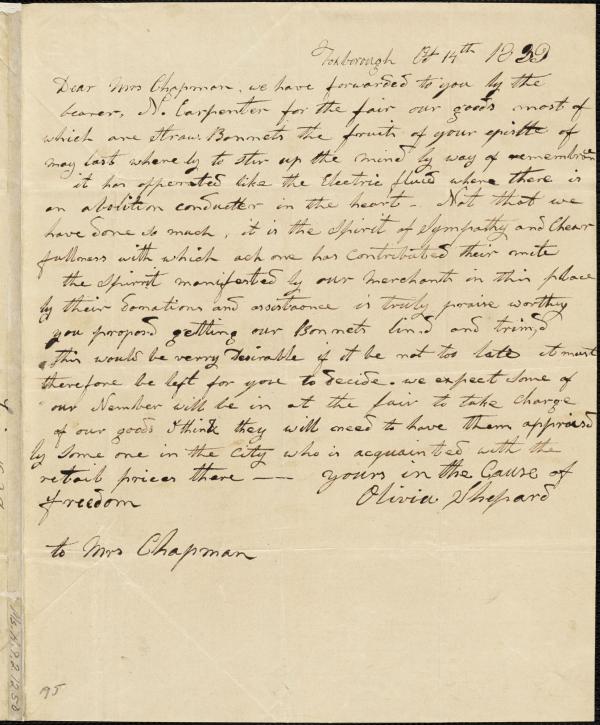 Foxborough Oct 14th 1839
Dear Mrs Chapman, we have forwarded to you by the
bearer, N. Carpenter for the fair our goods most of
which are Straw Bonnets the fruits of your epistle of
may last where by to stir up the mind by way of remembran
it has opperated like the Electric fluid where there is
an abolition conducter in the heart - Not that we
have done so much, it is the Spirit of Sympathy and Chear
fullness with which ach one has contributed their mite
the Spirit manifested by our merchants in this place
by their donations and assistance is truly praise worthy
you propos'd getting our Bonnets lin'd and trim'd
this would be verry Desirable if it be not too late it must
therefore be left for you to decide. we expect some of
our Nember will be in at the fair to take charge
of our goods I think they will need to have them apprised
by some one in the City who is acquainted with the
retail prices there —— yours in the Cause of
freedom Olivia Shepard
to Mrs Chapman
95